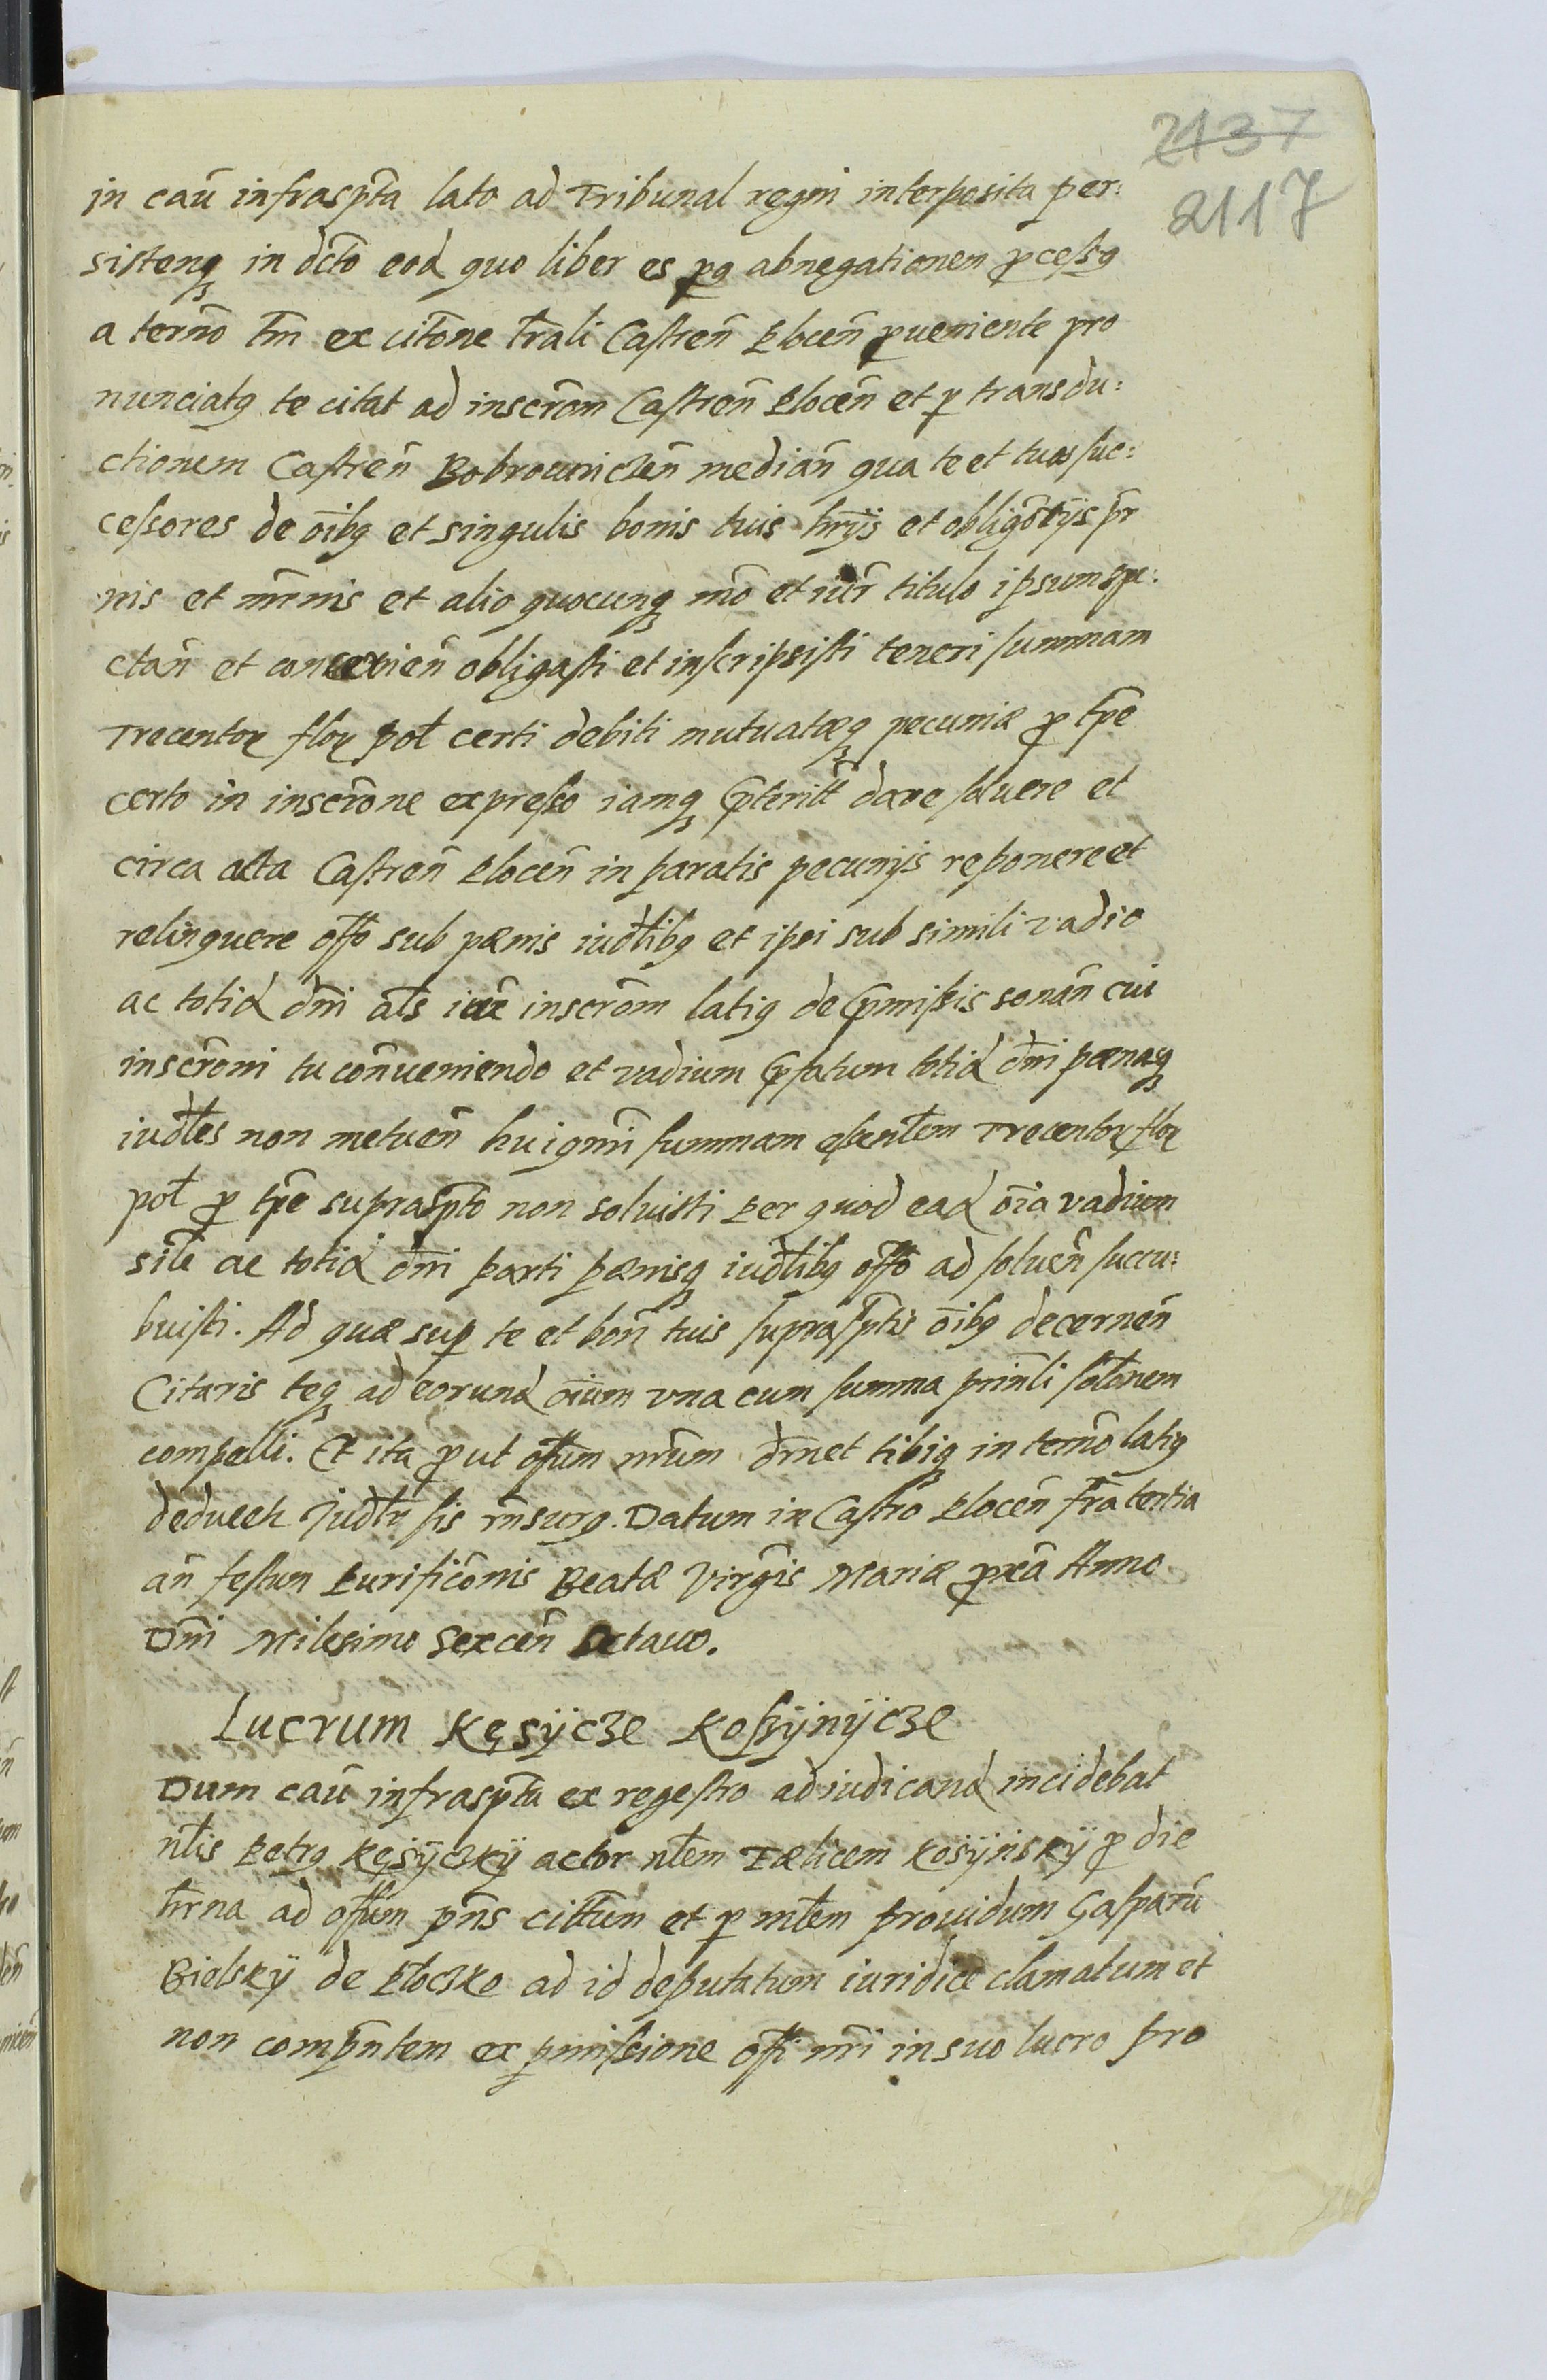 2137
2117
in cau͂ infrasp̃ta lato ad Tribunal regni interposita per:
sistenq́ꝫ in dc̃to eod̃ quo liber es p̱q abnegationem ꝓceſsꝯ
a term̃o tm̃ ex citõne tr̃ali Castren̄ Plocen̄ ꝓueniente pro
nunciatꝯ te citat ad inscrõm Castren̄ Plocen̄ et ꝑ transdu:
ctionem Castren̄ Bobrownicẽn median̄ qua te et tuos suc:
ceſsores de oĩbꝯ et singulis bonis tuis hr̃ijs et obligõrijs pr̃
nis et mr̃nis et alio quocunqꝫ mõ et iur̃ titulo ipsum spe:
ctan̄ et concernien̄ obligasti et inscripsisti teneri summam
Trecentoꝝ floꝝ pol̃ certi debiti mutuatæqꝫ pecuniæ ꝓ tp̃e
certo in inscrõne expreſso iamqꝫ p̃terit̃t dare soluere et
circa acta Castren̄ Plocen̄ in paratis pecunijs reponere et
relinquere off̃o sub pænis iud̃libꝯ et ipsi sub simili vadio
ac totid̃ dm̃i al̃s iux̃ inscrõm latiꝯ de p̃miſsis sonan̄ cui
inscrõni tu conueniendo et vadium p̃fatum totid̃ dm̃i pænasqꝫ
iud̃les non metuen̄ huiꝯmr̃i summam Trecentoꝝ floꝝ
pol̃ ꝓ tp̃e suprasp̃to non soluisti Per quod ead̃ oĩa vadium
sil̃e ac totid̃ dm̃i parti pænisqꝫ iud̃libꝯ off̃o ad soluen̄ succu:
buisti. Ad quæ suꝑ te et bon̄ tuis suprasp̃tis oĩbꝯ decernen̄
Citaris teqꝫ ad eorund̃ oĩum vna cum summa prin̄li sol̃onem
compelli. Et ita ꝓ ut off̃um nr̃um dr̃net tibiqꝫ in term̃o latiꝯ
deducetr̃ Jud̃lr̃ sis rn̄surꝯ. Datum in Castro Plocen̄ fr̃a tertia
an̄ festum Purificõnis Beatæ Virg̃is Mariæ ꝓxã Anno
Dm̃i Milesimo Sexcen̄ Octauo.
Lucrum Kęsÿcze Koſsÿnÿcze
Dum cau͂ infrasp̃ta ex regestro ad iudicand̃ incidebat
nl̃is Petrꝯ Kęsÿczkÿ actor nl̃em Fælicem Kosÿnskÿ ꝓ die
hr̃na ad off̃um pñs cit̃tum et ꝑ mĩlem prouidum Gasparu͂
Bielskÿ de Ploczko ad id deputatum iuridice clamatum et
non comp̃ntem ex ꝑmiſsione off̃i nr̃i in suo lucro pro